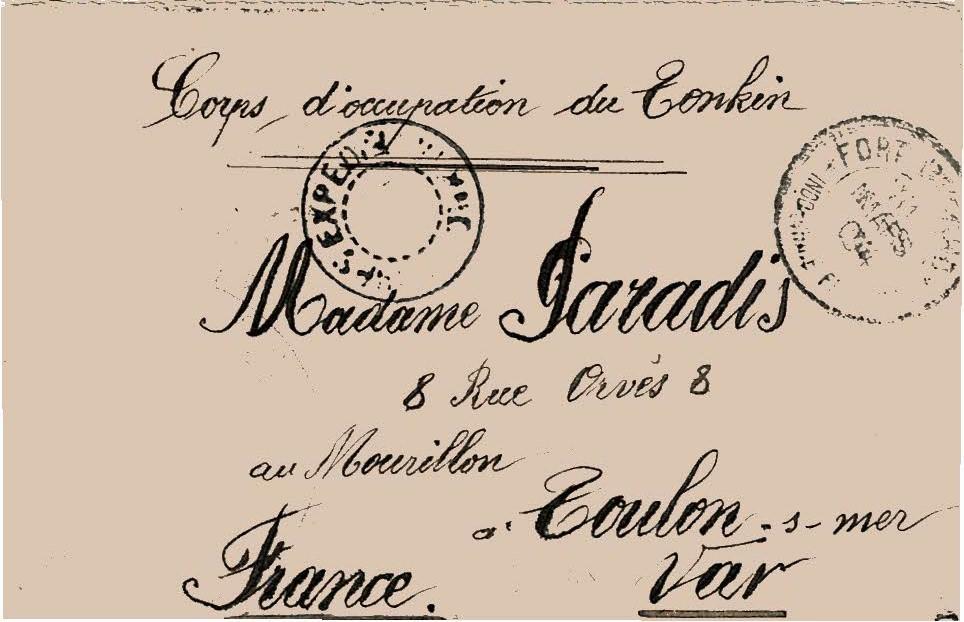 Corps d'occupation du Tonkin
EXPED
FORT
Madame Paradis
8 Rue Orvès 8
au Mourillon
a' Toulon-s-mer
France. Var